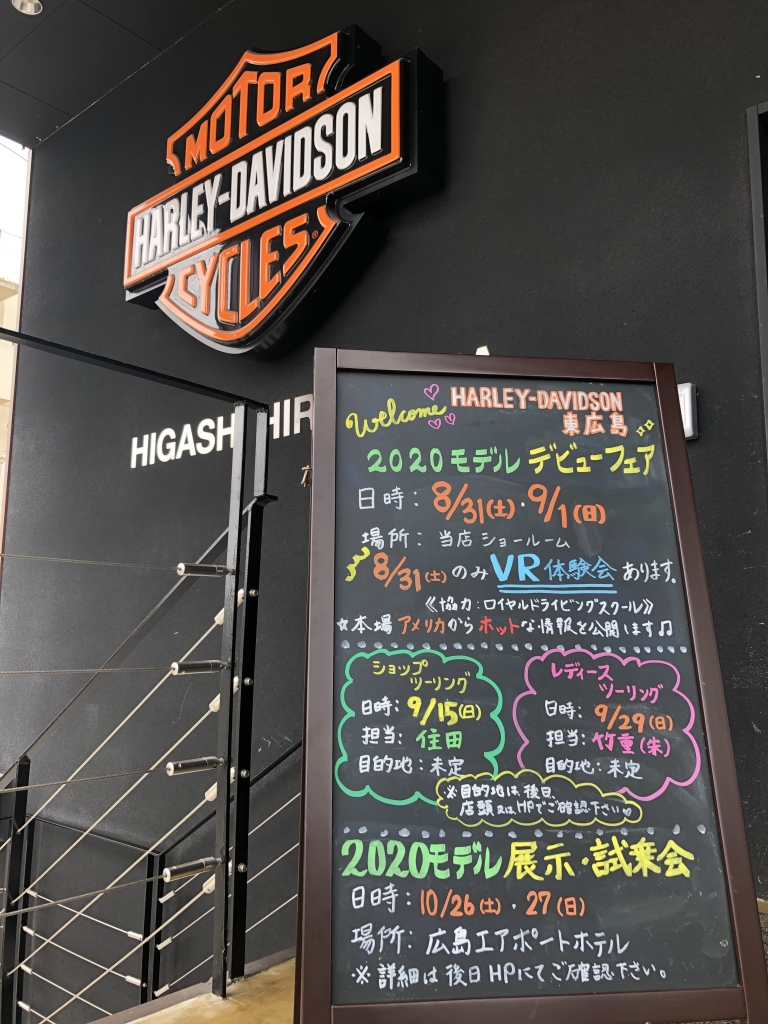 MOTOR
HARLEY-DAVIDSON
CYCLES
HIGASHIHIR
Welcome
HARLEY-DAVIDSON
東広島
2020モデル デビューフェア
日時: 8/31(土)・9/1(日)
場所: 当店ショールーム
8/31(土)のみ VR体験会 あります。
《協力:ロイヤルドライビングスクール》
☆本場アメリカからホットな情報を公開します♫
ショップ
ツーリング
日時: 9/15(日)
担当: 住田
目的地: 未定
レディース
ツーリング
日時: 9/29(日)
担当: 竹重(朱)
目的地: 未定
※目的地は、後日、
店頭又はHPでご確認下さい♡
2020モデル 展示・試乗会
日時: 10/26(土)・27(日)
場所: 広島エアポートホテル
※詳細は後日HPにてご確認下さい。